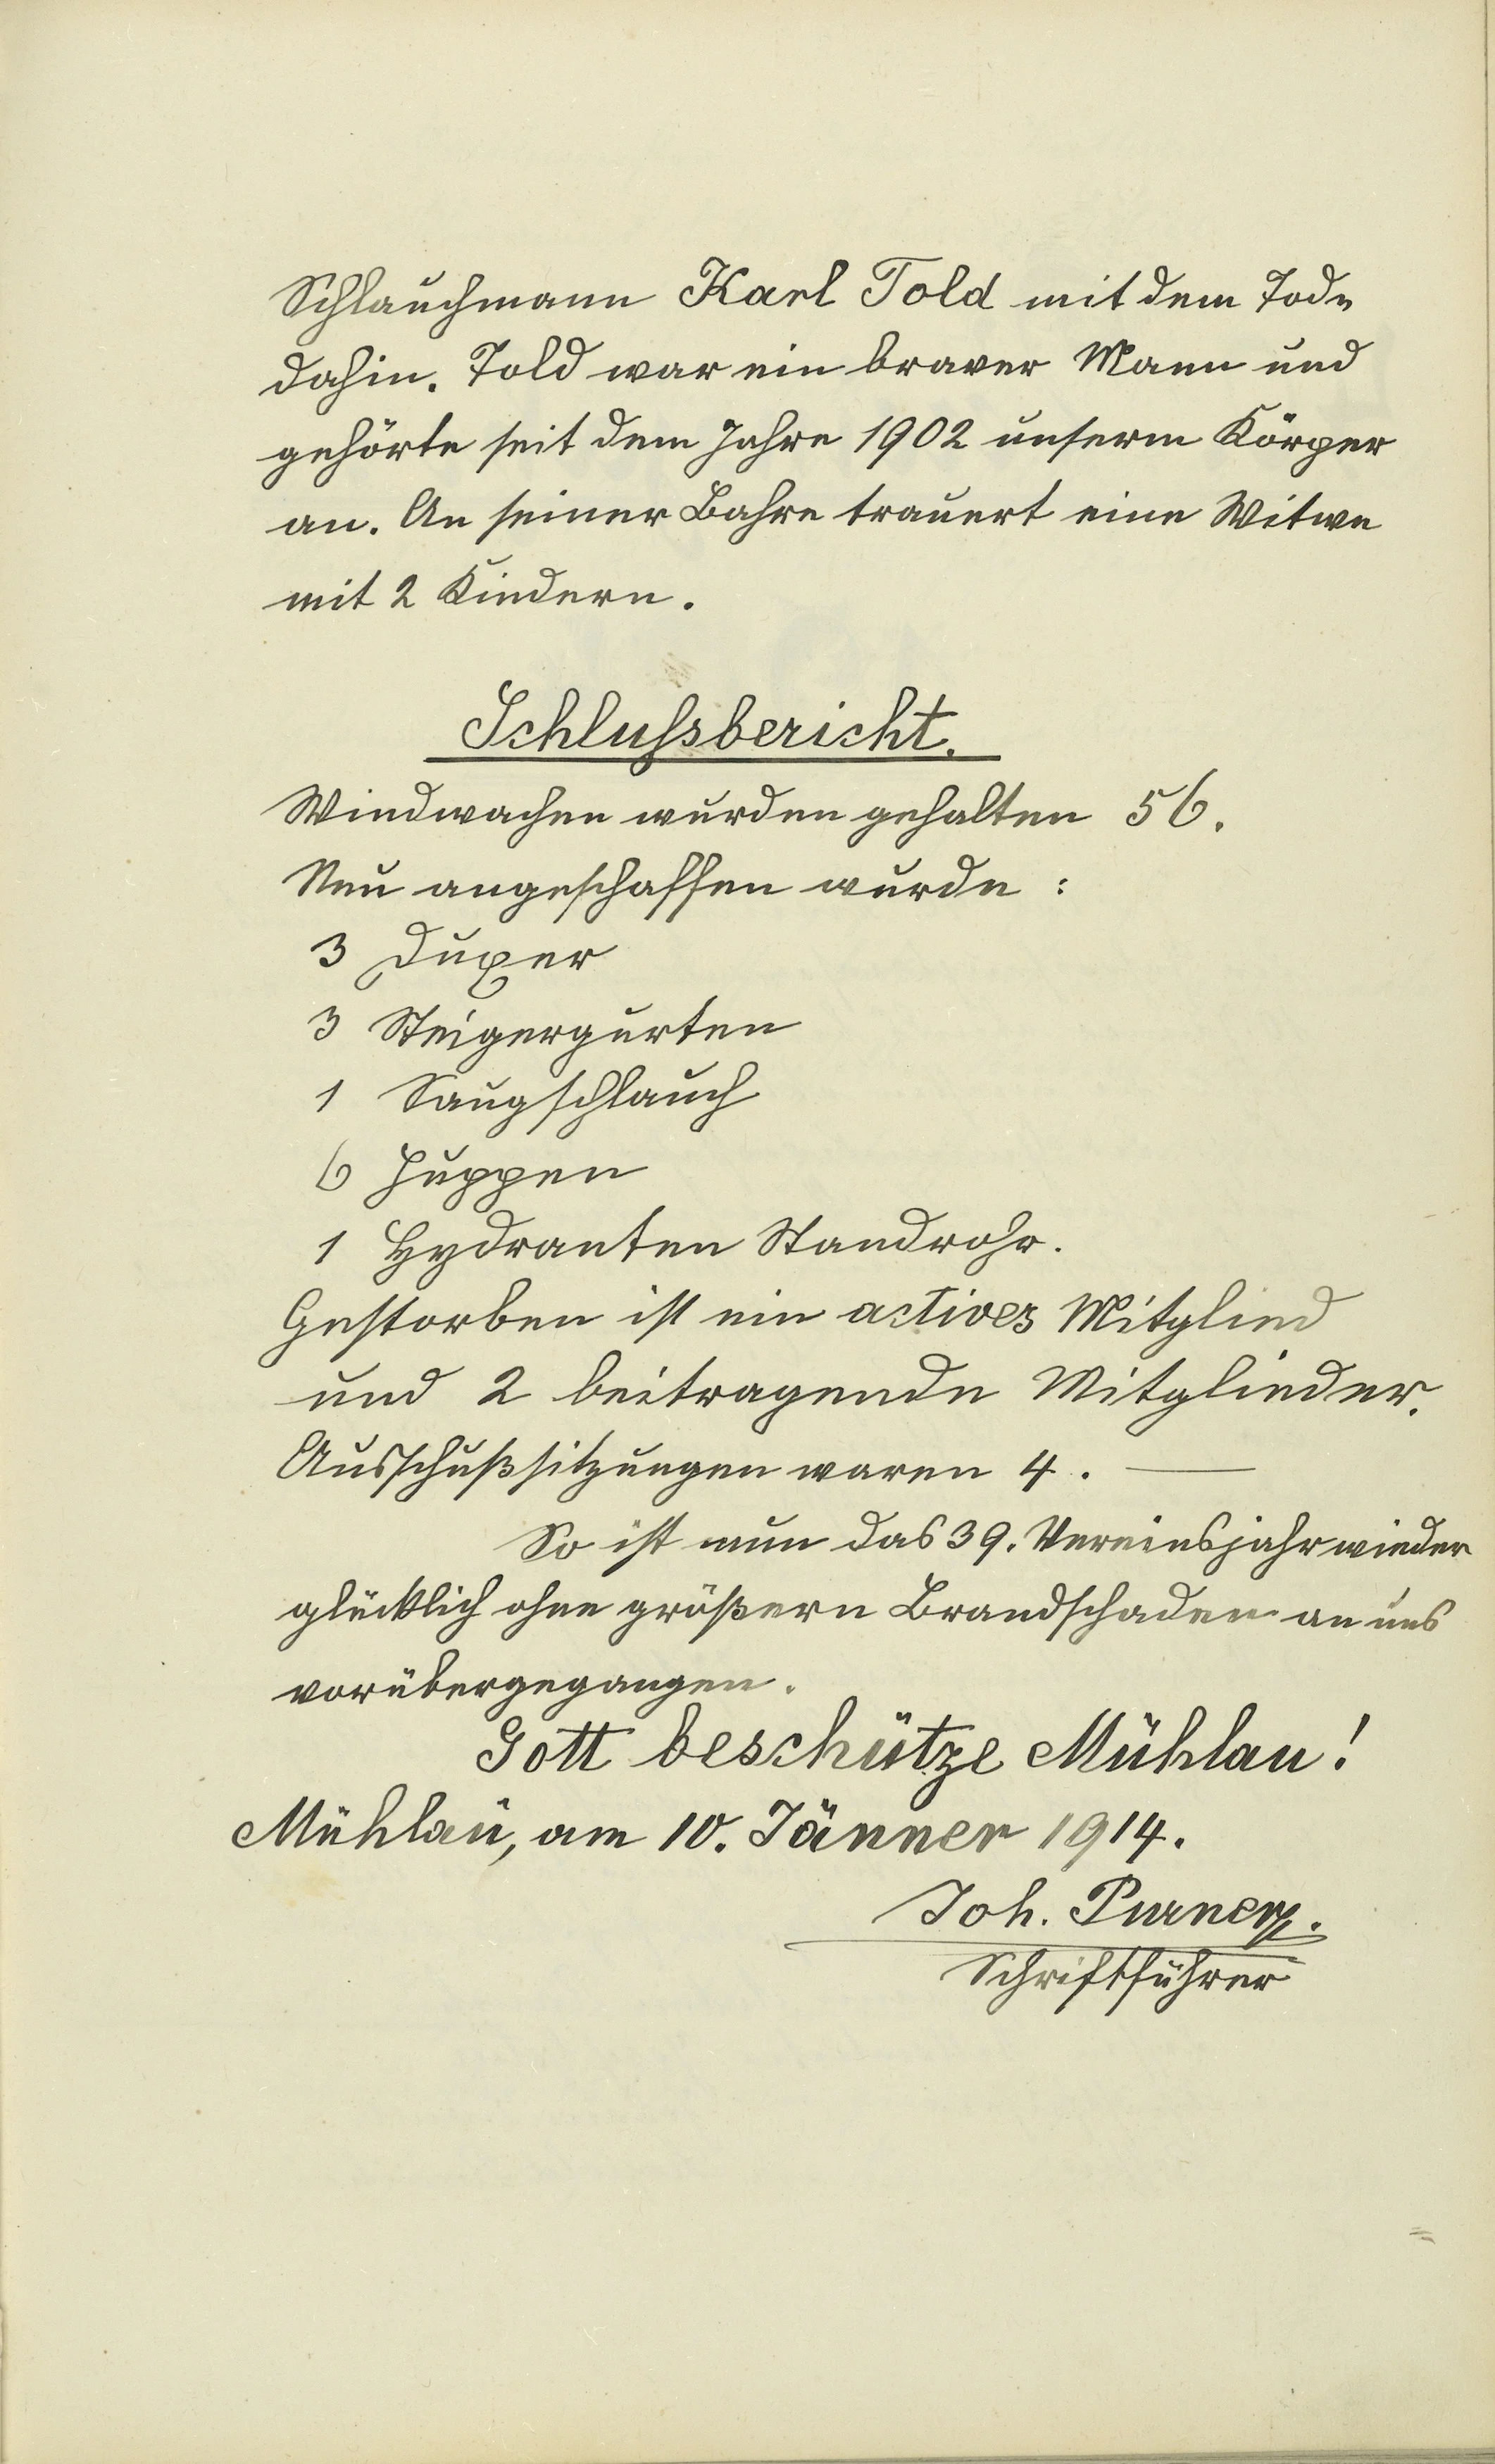 Schlauchmann Karl Told mit dem Tode
dahin. Told war ein braver Mann und
gehörte seit dem Jahre 1902 unserm Körper
an. An seiner Bahre trauert eine Witwe
mit 2 Kindern.
Schlußbericht.
Windwachen wurden gehalten 56.
Neu angeschaffen wurde :
3 Duxer
3 Steigergurten
1 Saugschlauch
6 Huppen
1 Hydranten Standrohr.
Gestorben ist ein actives Mitglied
und 2 beitragende Mitglieder.
Ausschußsitzungen waren 4. —
So ist nun das 39. Vereinsjahr wieder
glücklich ohne größern Brandschaden an uns
vorübergegangen.
Gott beschütze Mühlau!
Mühlau, am 10. Jänner 1914.
Joh. Purner.
Schriftführer